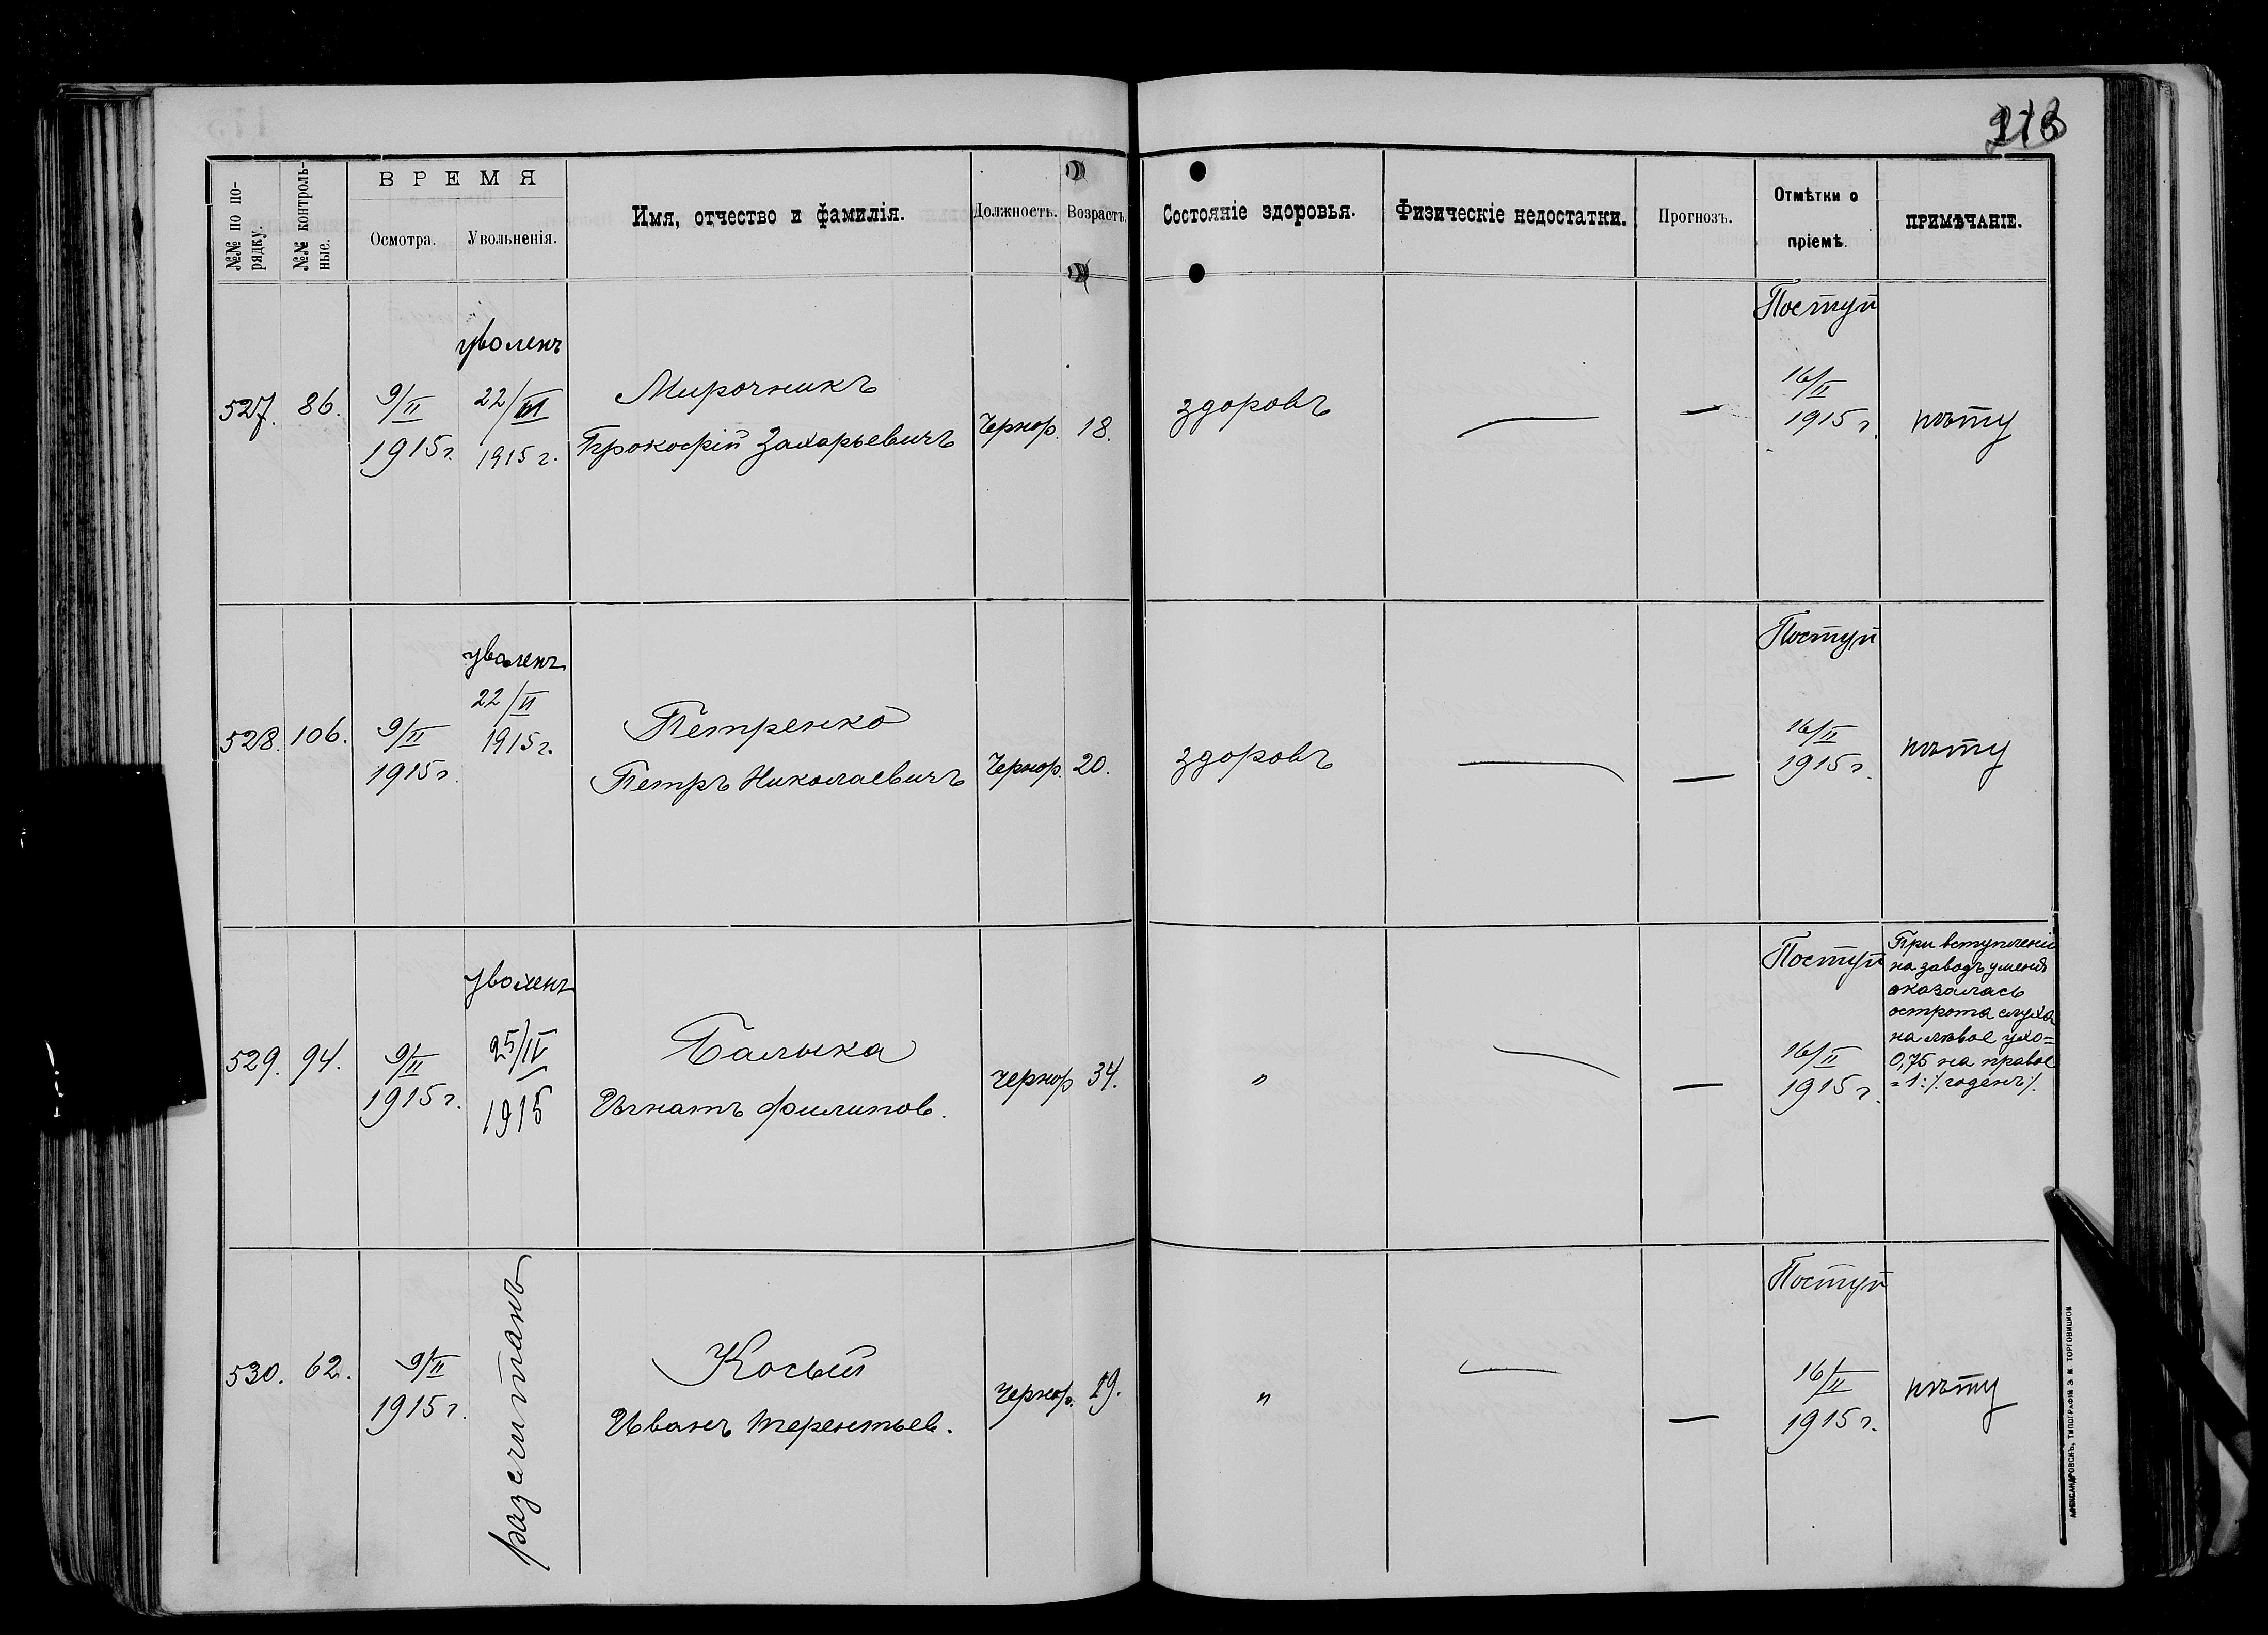 №№ по по-
рядку.
№№ контроль-
ные.
ВРЕМЯ
Осмотра.
Увольненія.
Имя, отчество и фамилія.
Должность.
Возрастъ.
Состояніе здоровья.
Физическіе недостатки.
Прогнозъ.
Отмѣтки о
пріемѣ.
ПРИМѢЧАНІЕ.
527. 86.
9/II
1915 г.
уволенъ
22/VI
1915 г.
Мирочникъ
Прокофій Захарьевичъ
Чернор. 18.
здоровъ
—
—
Поступ
16/II
1915 г.
528. 106.
9/II
1915 г.
уволенъ
22/VI
1915 г.
Петренко
Петръ Николаевичъ
Чернор. 20.
здоровъ
—
—
Поступ
16/II
1915 г.
529. 94.
9/II
1915 г.
уволенъ
25/IV
1915
Балыка
Игнатъ Филипов.
чернор 34.
"
—
—
Поступ
16/II
1915 г.
При вступленіи
на заводъ у меня
оказалась
острота слуха
на лѣвое ухо=
0,75 на правое
=1:/. годенъ/.
530. 62.
9/II
1915 г.
разсчитанъ
Косый
Иванъ Терентьев.
чернор. 19.
"
—
—
Поступ
16/II
1915 г.
АЛЕКСАНДРОВСКЪ, ТИПОГРАФІЯ Э. И ТОРГОВИЦКОЙ